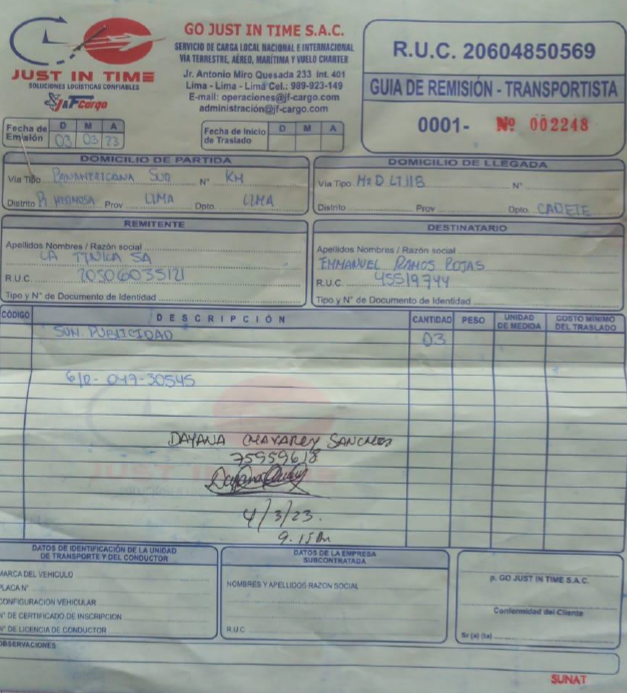 JUST IN TIME
SOLUCIONES LOGÍSTICAS CONFIABLES
J&F Cargo
GO JUST IN TIME S.A.C.
SERVICIO DE CARGA LOCAL NACIONAL E INTERNACIONAL
VÍA TERRESTRE, AÉREO, MARÍTIMA Y VUELO CHARTER
Jr. Antonio Miro Quesada 233 Int. 401
Lima - Lima - Lima Cel.: 989-923-149
E-mail: operaciones@jf-cargo.com
administración@jf-cargo.com
R.U.C. 20604850569
GUIA DE REMISIÓN - TRANSPORTISTA
0001- Nº 002248
Fecha de Emisión D M A
03 03 23
Fecha de Inicio de Traslado D M A
DOMICILIO DE PARTIDA
Via Tipo PANAMERICANA SUR N° KM
Distrito P. HERMOSA Prov LIMA Dpto. LIMA
DOMICILIO DE LLEGADA
Via Tipo Mz D LT 118 N°
Distrito Prov Dpto. CAÑETE
REMITENTE
Apellidos Nombres / Razón social
LA TINKA SA
R.U.C. 20506035121
Tipo y N° de Documento de Identidad
DESTINATARIO
Apellidos Nombres / Razón social
EMMANUEL RAMOS ROJAS
R.U.C. 45519744
Tipo y N° de Documento de Identidad
CÓDIGO DESCRIPCIÓN CANTIDAD PESO UNIDAD DE MEDIDA COSTO MÍNIMO DEL TRASLADO
PUBLICIDAD 03
G/R- 049-30545
DAYANA SANCHES
75959618
4/3/23.
9.15
JUST IN TIME
DATOS DE IDENTIFICACIÓN DE LA UNIDAD
DE TRANSPORTE Y DEL CONDUCTOR
MARCA DEL VEHICULO
PLACA N°
CONFIGURACION VEHICULAR
N° DE CERTIFICADO DE INSCRIPCION
N° DE LICENCIA DE CONDUCTOR
DATOS DE LA EMPRESA
SUBCONTRATADA
NOMBRES Y APELLIDOS RAZON SOCIAL
R.U.C
p. GO JUST IN TIME S.A.C.
Conformidad del Cliente
Sr (a) (ta)
OBSERVACIONES
SUNAT